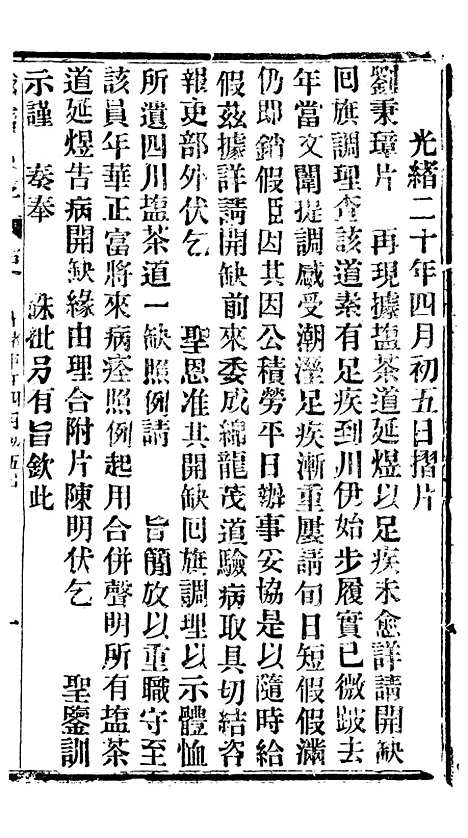 光緒二十年四月初五日摺片
劉秉璋片　再現據塩茶道延煜以足疾未愈詳請開缺
回旗調理查該道素有足疾到川伊始步履實已微跛去
年當文闈提調感受潮溼足疾漸重屢請旬日短假假滿
仍即銷假臣因其因公積勞平日辦事妥協是以隨時給
假茲據詳請開缺前來委成綿龍茂道驗病取具切結咨
報吏部外伏乞　聖恩准其開缺回旗調理以示體恤
所遺四川塩茶道一缺照例請　旨簡放以重職守至
該員年華正富將來病痊照例起用合併聲明所有塩茶
道延煜告病開缺緣由理合附片陳明伏乞　聖鑒訓
示謹　奏奉　硃批另有旨欽此